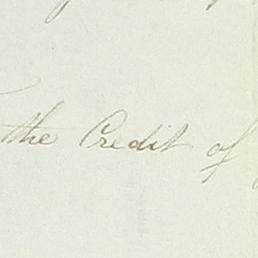 the Credit of